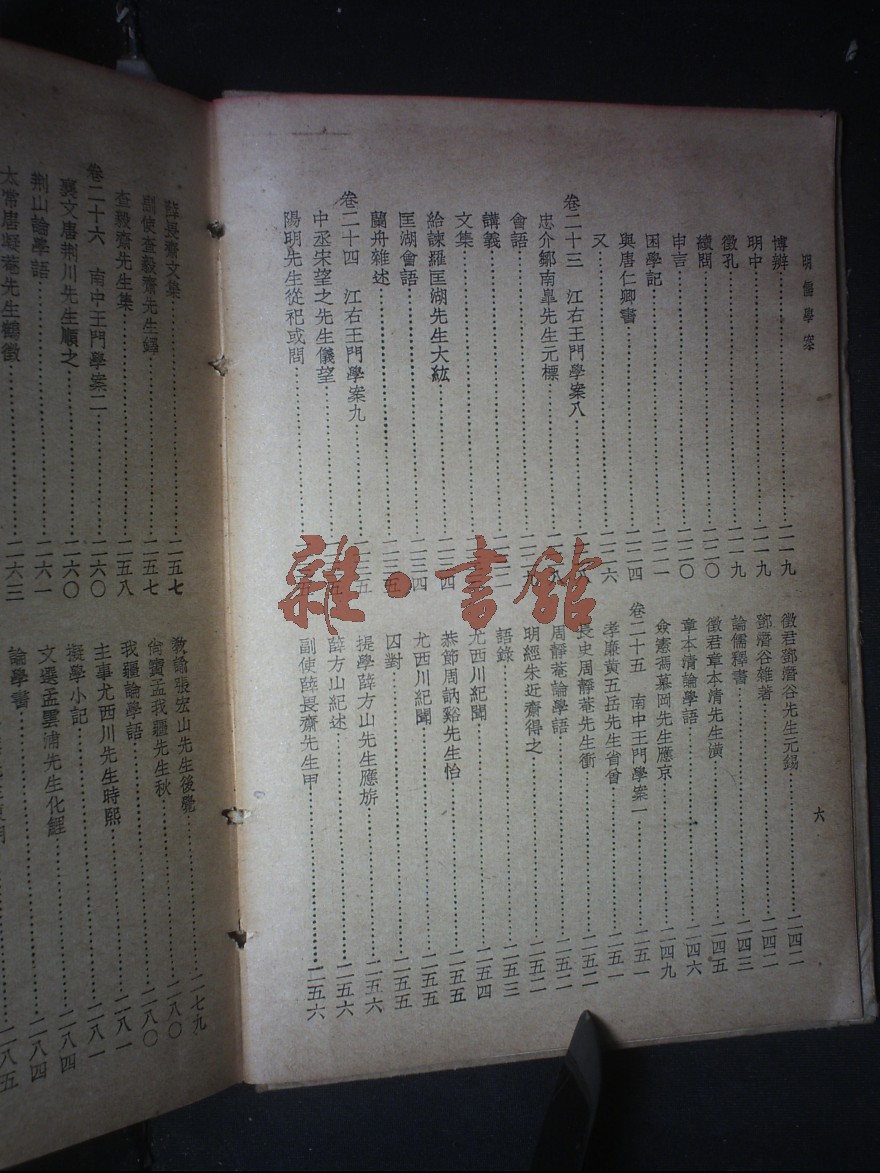 明儒學案
六
博辨……二一九
明中……二一九
徵孔……二一九
續問……二二〇
申言……二二〇
困學記……二二一
與唐仁卿書……二二四
又……二二六
卷二十三 江右王門學案八
忠介鄒南臯先生元標
會語
講義
文集
給諫羅匡湖先生大紘
匡湖會語……二三四
蘭舟雜述
卷二十四 江右王門學案九
中丞宋望之先生儀望
陽明先生從祀或問
徵君鄧潛谷先生元錫……二四二
鄧潛谷雜著……二四二
論儒釋書……二四三
徵君章本清先生潢……二四五
章本清論學語……二四六
僉憲馮慕岡先生應京……二四九
卷二十五 南中王門學案一……二五一
孝廉黃五岳先生省曾……二五一
長史周靜菴先生衝……二五二
周靜菴論學語……二五二
明經朱近齋得之……二五二
語錄……二五三
尤西川紀聞……二五四
恭節周訥谿先生怡……二五五
尤西川紀聞……二五五
囚對……二五五
提學薛方山先生應旂……二五六
薛方山紀述……二五六
副使薛畏齋先生甲……二五六
薛畏齋文集……二五七
副使查毅齋先生鐸……二五七
查毅齋先生集……二五八
卷二十六 南中王門學案二……二六〇
襄文唐荊川先生順之……二六〇
荊川論學語……二六一
太常唐凝菴先生鶴徵……二六三
教諭張宏山先生後覺……二七九
尚寶孟我疆先生秋……二八〇
我疆論學語……二八〇
主事尤西川先生時熙……二八一
擬學小記……二八一
文選孟雲浦先生化鯉……二八四
論學書……二八四
二八五
雜·書館